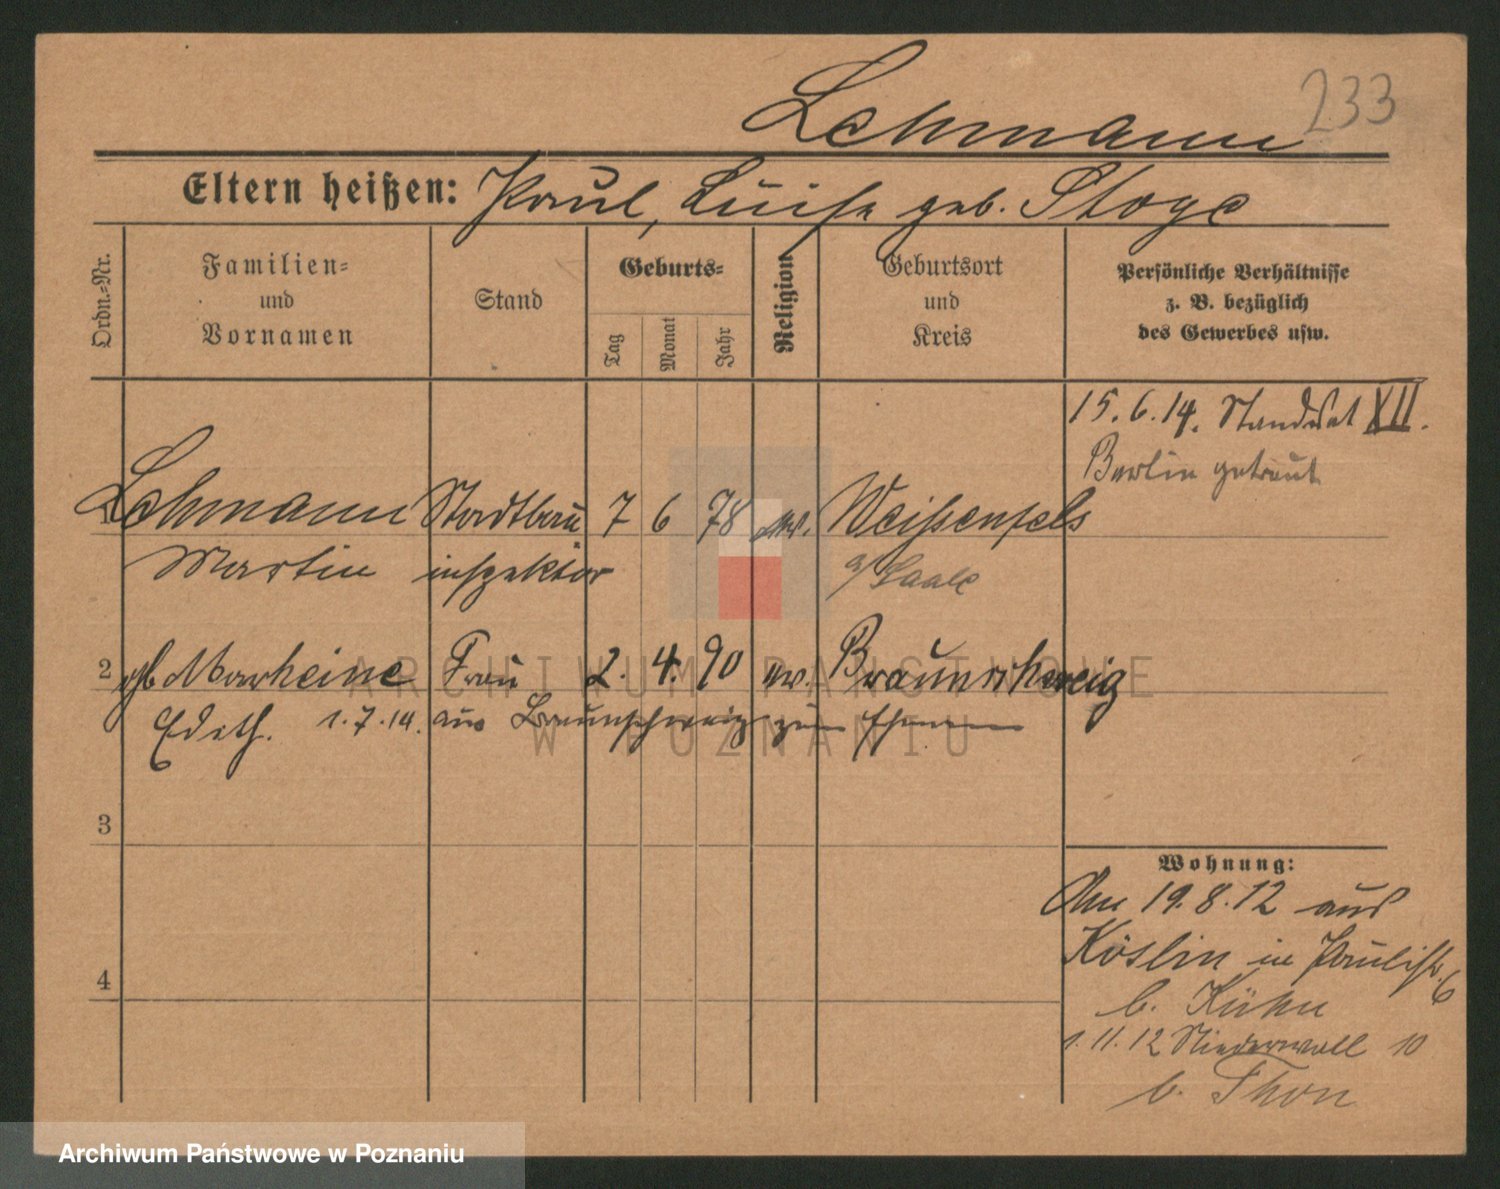 Lehmann 233
Eltern heißen: Paul, Luise geb. Stoye
Ordn.=Nr.
Familien=
und
Vornamen
Stand
Geburts=
Tag
Monat
Jahr
Religion
Geburtsort
und
Kreis
Persönliche Verhältnisse
z. B. bezüglich
des Gewerbes usw.
15.6.14. Standesamt XII.
Berlin getraut
1 Lehmann Stadtbau 7 6 78 ev. Weißenfels
Martin inspektor a/Saale
2 gb Marheine Frau 2. 4. 90 ev. Braunschweig
Edith. 1.7.14. aus Braunschweig zum Ehemann
3
4
Wohnung:
Am 19.8.12 aus
Köslin in Paulistr. 6
b. Kühn
1.11.12 Niederwall 10
b. Thon
ARCHIWUM PAŃSTWOWE
W POZNANIU
Archiwum Państwowe w Poznaniu